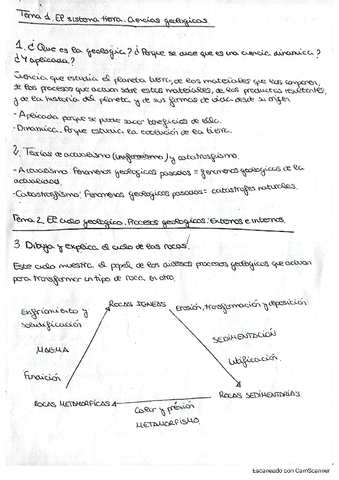 Tema 1. El sistema tierra. Ciencias geologicas
1. ¿Que es la geologia? ¿Porque se dice que es una ciencia dinamica?
¿Y aplicada?
Ciencia que estudia el planeta tierra, de los materiales que los componen,
de los procesos que actuan sobre estos materiales, de los productos resultantes,
y de la historia del planeta y de sus formas de vida desde su origen
- Aplicada porque se puede sacar beneficios de ella.
- Dinamica. Porque estudia la evolución de la tierra.
2. Teorias de actualismo (uniformismo) y catastrofismo.
- Actualismo: Fenomenos geologicos pasados = fenomenos geologicos de la
actualidad.
- Catastrofismo: Fenomenos geologicos pasados = catastrofes naturales.
Tema 2. El ciclo geologico. Procesos geologicos: Externos e internos.
3. Dibuja y explica el ciclo de las rocas.
Este ciclo muestra el papel de los diversos procesos geologicos que actuan
para transformar un tipo de roca en otro.
Enfriamiento y
solidificación
ROCAS IGNEAS
Erosión, transformación y deposición
MAGMA
SEDIMENTACIÓN
Fundición
Litificación.
ROCAS METAMORFICAS
Calor y presión
METAMORFISMO
ROCAS SEDIMENTARIAS
Escaneado con CamScanner